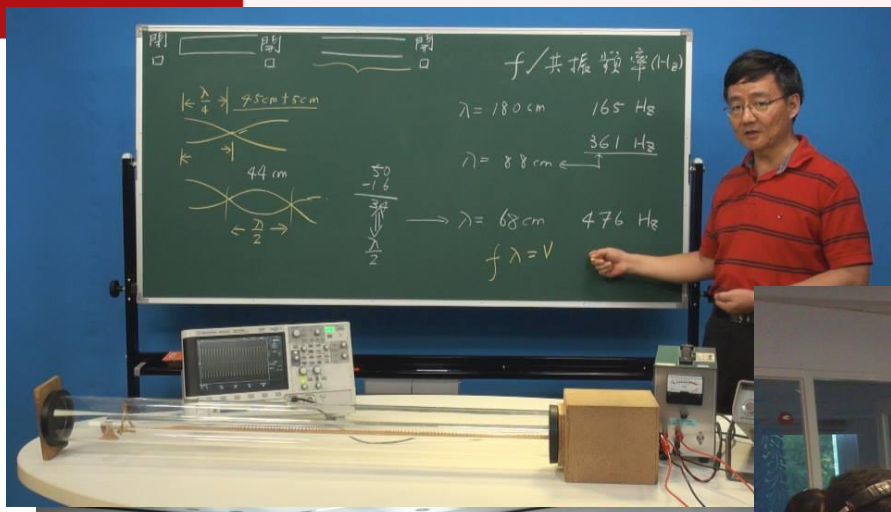 閉 開 開
口 口 口
f/共振頻率(Hz)
λ/4 45cm+5cm
λ=180cm 165 Hz
361 Hz
λ= 88cm
44cm
50
-16
34
λ/2
λ/2
λ= 68cm 476 Hz
fλ=V